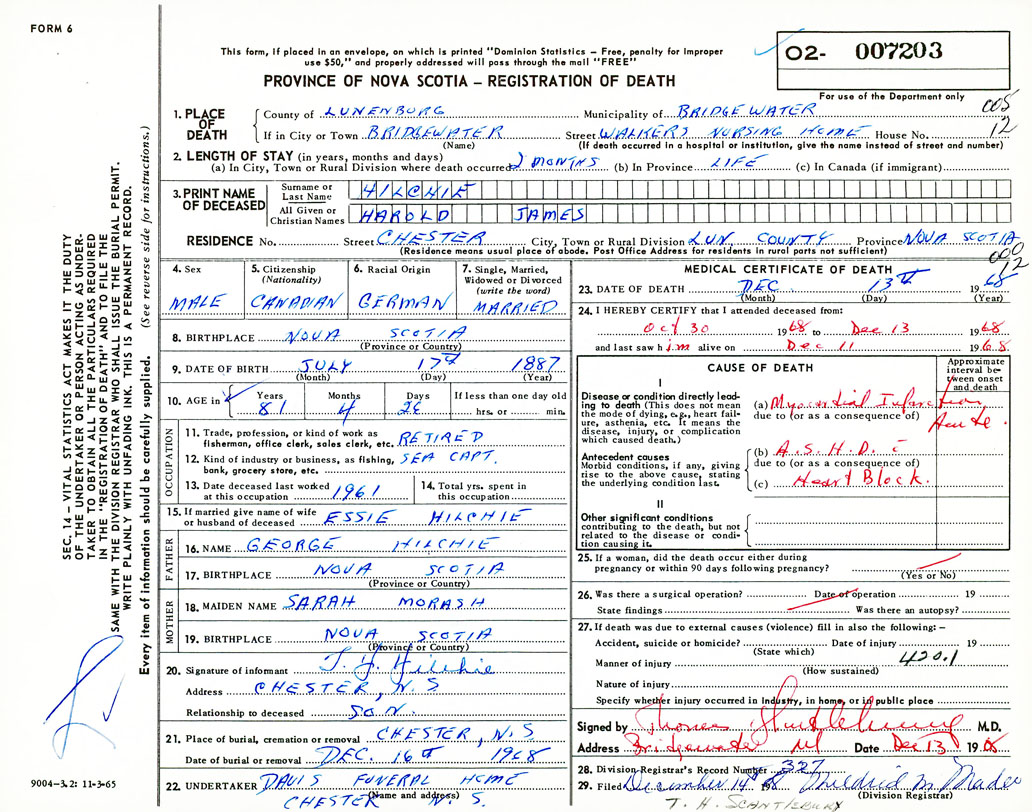 FORM 6
This form, if placed in an envelope, on which is printed "Dominion Statistics – Free, penalty for improper
use $50," and properly addressed will pass through the mail "FREE"
PROVINCE OF NOVA SCOTIA – REGISTRATION OF DEATH
02- 007203
For use of the Department only
005
12
1. PLACE OF DEATH
County of LUNENBURG Municipality of BRIDGEWATER
If in City or Town BRIDGEWATER Street WALKERS NURSING HOME House No.
(Name) (If death occurred in a hospital or institution, give the name instead of street and number)
2. LENGTH OF STAY (in years, months and days)
(a) In City, Town or Rural Division where death occurred 2 MONTHS (b) In Province LIFE (c) In Canada (if immigrant)
3. PRINT NAME OF DECEASED
Surname or Last Name HILCHIE
All Given or Christian Names HAROLD JAMES
RESIDENCE No. Street CHESTER City, Town or Rural Division LUN. COUNTY Province NOVA SCOTIA
(Residence means usual place of abode. Post Office Address for residents in rural parts not sufficient)
000
12
4. Sex
MALE
5. Citizenship
(Nationality)
CANADIAN
6. Racial Origin
GERMAN
7. Single, Married,
Widowed or Divorced
(write the word)
MARRIED
8. BIRTHPLACE NOVA SCOTIA
(Province or Country)
9. DATE OF BIRTH JULY 17th 1887
(Month) (Day) (Year)
10. AGE in
Years Months Days If less than one day old
81 4 26 hrs. or min.
OCCUPATION
11. Trade, profession, or kind of work as
fisherman, office clerk, sales clerk, etc. RETIRED
12. Kind of industry or business, as fishing, SEA CAPT.
bank, grocery store, etc.
13. Date deceased last worked
at this occupation 1961
14. Total yrs. spent in
this occupation
15. If married give name of wife
or husband of deceased ESSIE HILCHIE
FATHER
16. NAME GEORGE HILCHIE
17. BIRTHPLACE NOVA SCOTIA
(Province or Country)
MOTHER
18. MAIDEN NAME SARAH MORASH
19. BIRTHPLACE NOVA SCOTIA
(Province or Country)
20. Signature of informant Hilchie
Address CHESTER, N.S
Relationship to deceased SON.
21. Place of burial, cremation or removal CHESTER, N.S
Date of burial or removal DEC. 16th 1968
22. UNDERTAKER DAVIS FUNERAL HOME
(Name and address)
CHESTER N. S.
MEDICAL CERTIFICATE OF DEATH
23. DATE OF DEATH DEC. 13th 1968
(Month) (Day) (Year)
24. I HEREBY CERTIFY that I attended deceased from:
Oct 30 1968 to Dec 13 1968
and last saw him alive on Dec 11 1968
CAUSE OF DEATH
Approximate
interval be-
tween onset
and death
I
Disease or condition directly lead-
ing to death (This does not mean
the mode of dying, e.g., heart fail-
ure, asthenia, etc. It means the
disease, injury, or complication
which caused death.)
(a) Myocardial Infarction
due to (or as a consequence of) Acute.
Antecedent causes
Morbid conditions, if any, giving
rise to the above cause, stating
the underlying condition last.
(b) A.S.H.D. c̄
due to (or as a consequence of)
(c) Heart Block.
II
Other significant conditions
contributing to the death, but not
related to the disease or condi-
tion causing it.
25. If a woman, did the death occur either during
pregnancy or within 90 days following pregnancy?
(Yes or No)
26. Was there a surgical operation? Date of operation 19
State findings Was there an autopsy?
27. If death was due to external causes (violence) fill in also the following: –
Accident, suicide or homicide? Date of injury 19
(State which)
Manner of injury 420.1
(How sustained)
Nature of injury
Specify whether injury occurred in Industry, in home, or in public place
Signed by Thomas Scantlebury M.D.
Address Bridgewater NS Date Dec 13 1968
28. Division Registrar's Record Number 327
29. Filed December 14 1968 Mildred M. Mader
(Division Registrar)
T. H. SCANTLEBURY
SEC. 14 – VITAL STATISTICS ACT MAKES IT THE DUTY
OF THE UNDERTAKER OR PERSON ACTING AS UNDER-
TAKER TO OBTAIN ALL THE PARTICULARS REQUIRED
IN THE "REGISTRATION OF DEATH" AND TO FILE THE
SAME WITH THE DIVISION REGISTRAR WHO SHALL ISSUE THE BURIAL PERMIT.
WRITE PLAINLY WITH UNFADING INK. THIS IS A PERMANENT RECORD.
Every item of information should be carefully supplied. (See reverse side for instructions.)
9004–3.2: 11-3-65